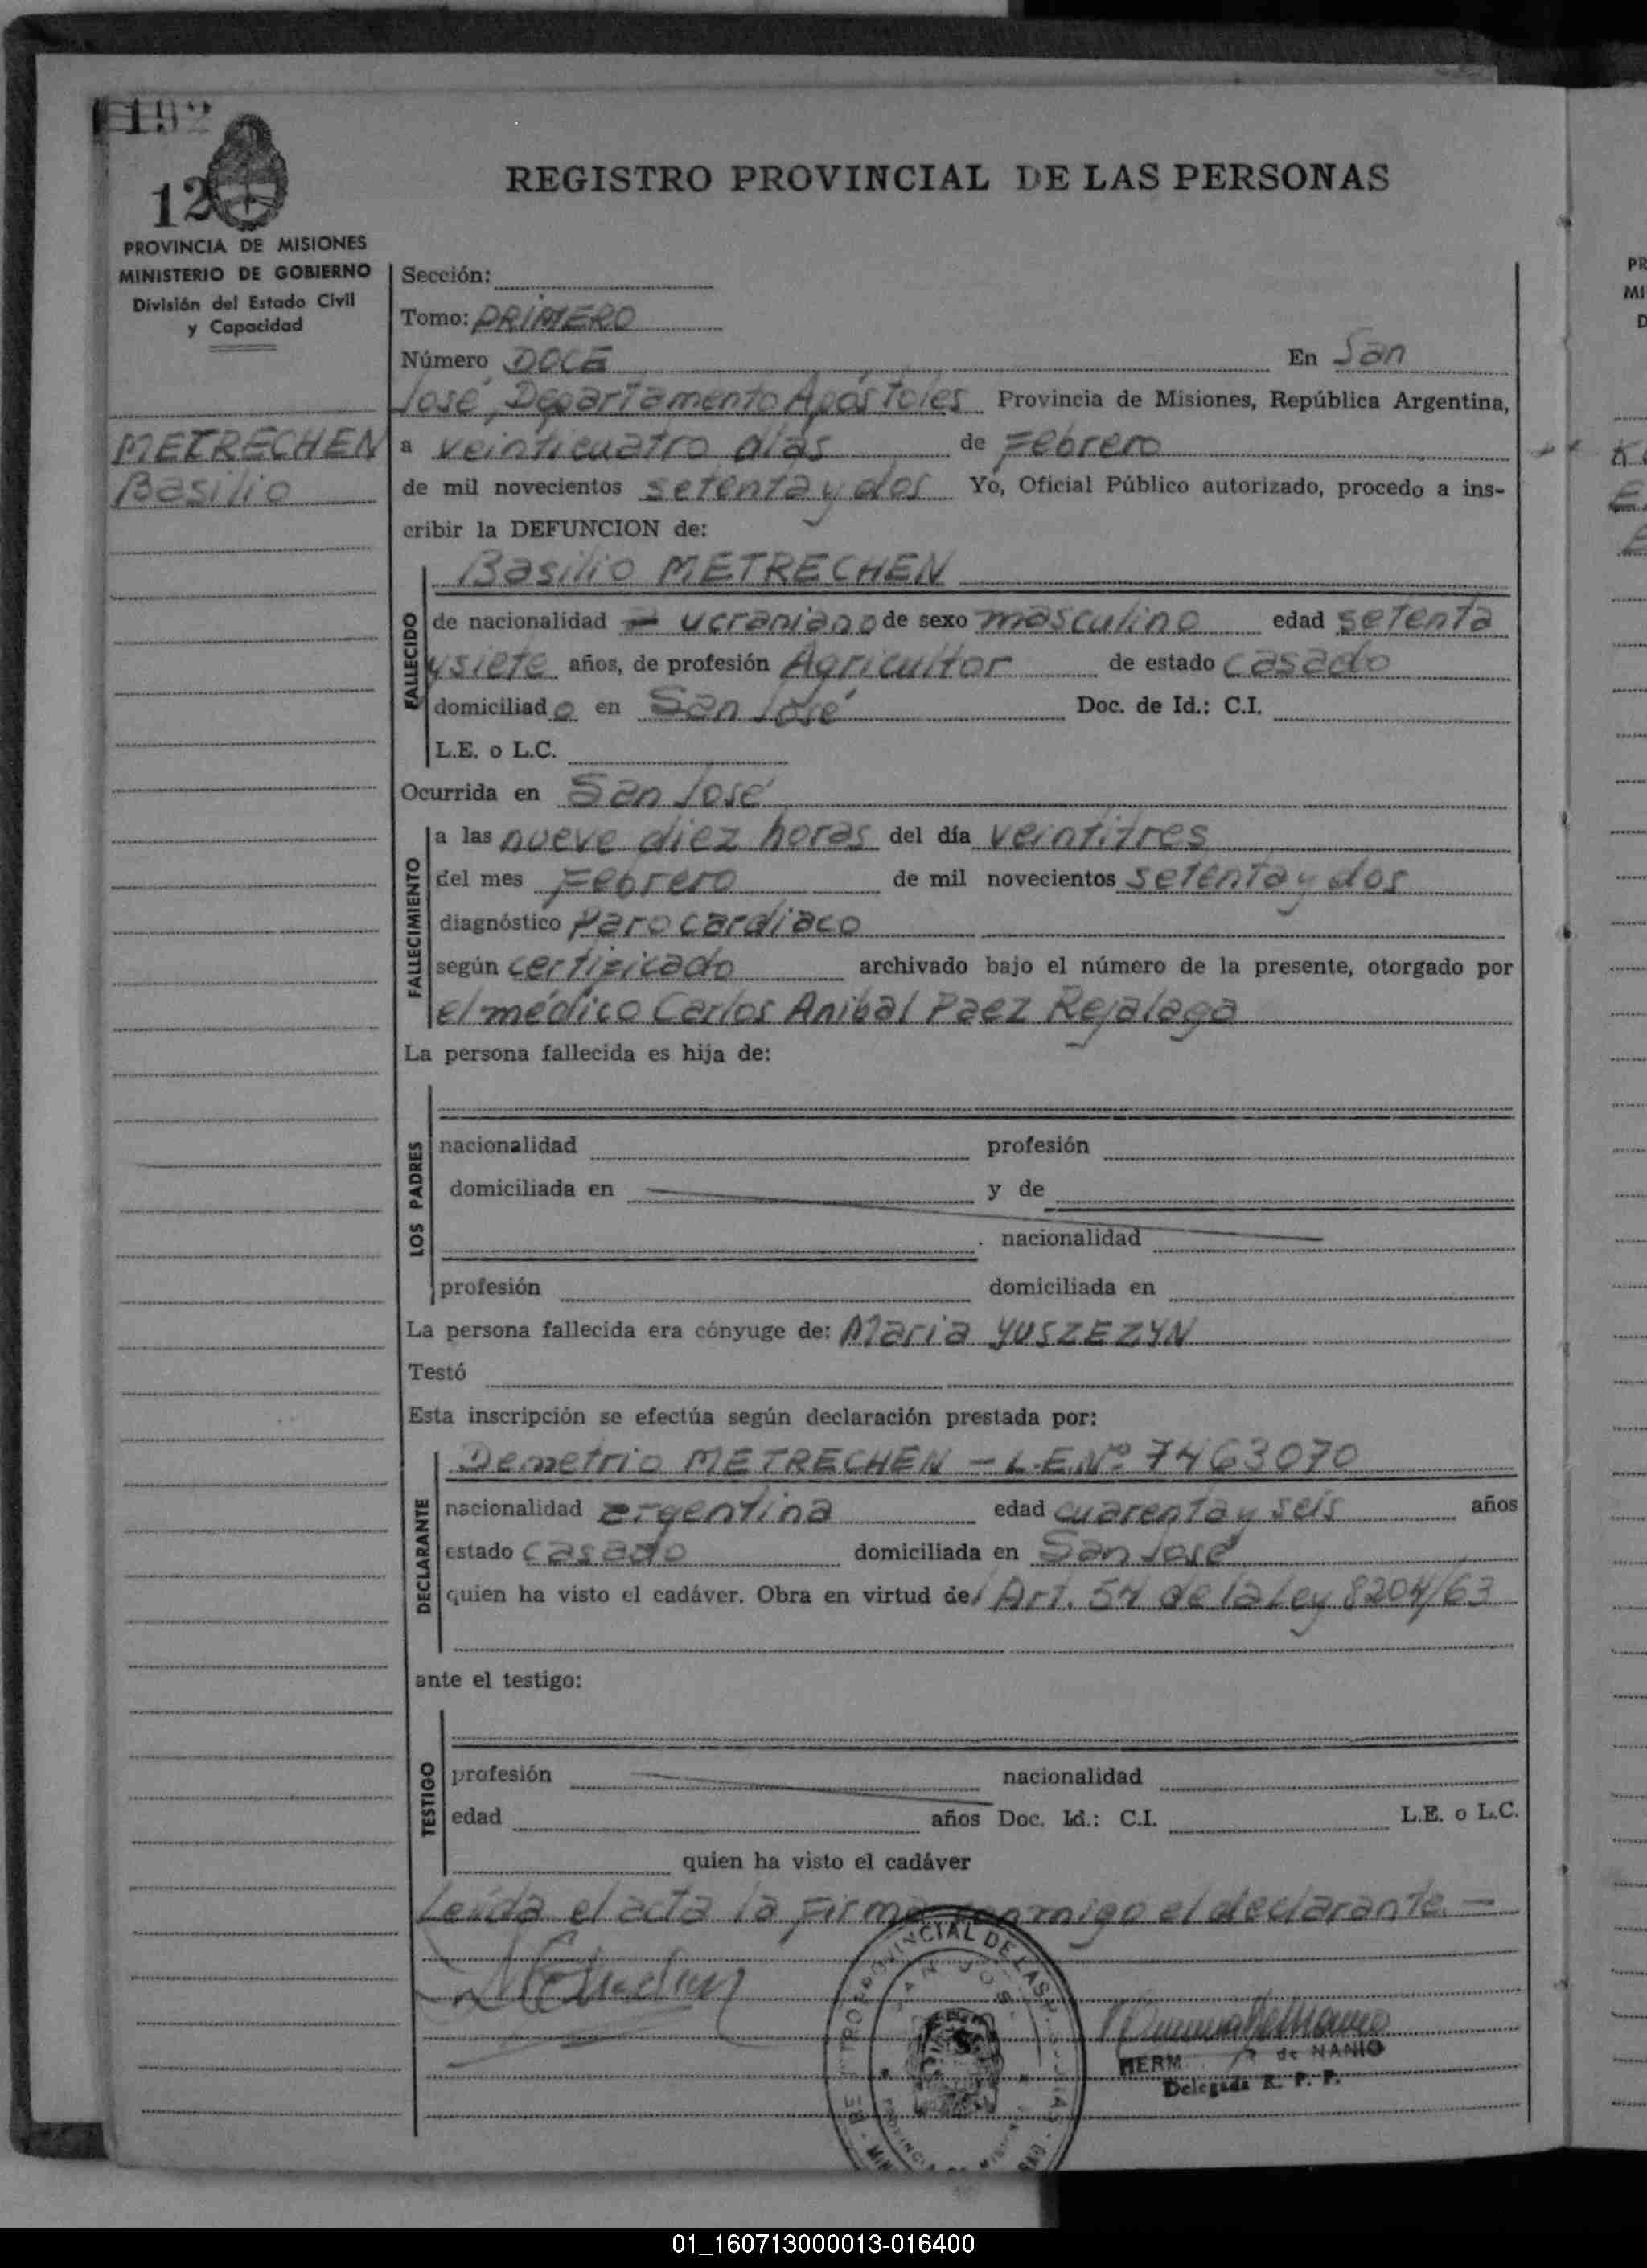 192
12
REGISTRO PROVINCIAL DE LAS PERSONAS
PROVINCIA DE MISIONES
MINISTERIO DE GOBIERNO
División del Estado Civil
y Capacidad
METRECHEN
Basilio
Sección:
Tomo: PRIMERO
Número DOCE En San
José, Departamento Apóstoles Provincia de Misiones, República Argentina,
a veinticuatro días de Febrero
de mil novecientos setenta y dos Yo, Oficial Público autorizado, procedo a ins-
cribir la DEFUNCION de:
Basilio METRECHEN
FALLECIDO
de nacionalidad ucraniano de sexo masculino edad setenta
y siete años, de profesión Agricultor de estado casado
domiciliado en San José Doc. de Id.: C.I.
L.E. o L.C.
Ocurrida en San José
FALLECIMIENTO
a las nueve diez horas del día veintitres
del mes Febrero de mil novecientos setenta y dos
diagnóstico Paro cardiaco
según certificado archivado bajo el número de la presente, otorgado por
el médico Carlos Anibal Paez Rejalaga
La persona fallecida es hija de:
LOS PADRES
nacionalidad profesión
domiciliada en y de
nacionalidad
profesión domiciliada en
La persona fallecida era cónyuge de: Maria YUSZEZYN
Testó
Esta inscripción se efectúa según declaración prestada por:
DECLARANTE
Demetrio METRECHEN - L.E.Nº 7463070
nacionalidad argentina edad cuarenta y seis años
estado casado domiciliada en San José
quien ha visto el cadáver. Obra en virtud del Art. 54 de la Ley 8204/63
ante el testigo:
TESTIGO
profesión nacionalidad
edad años Doc. Id.: C.I. L.E. o L.C.
quien ha visto el cadáver
Leída el acta la firma conmigo el declarante. -
HERM de NANIO
Delegada R. P. P.
01_160713000013-016400